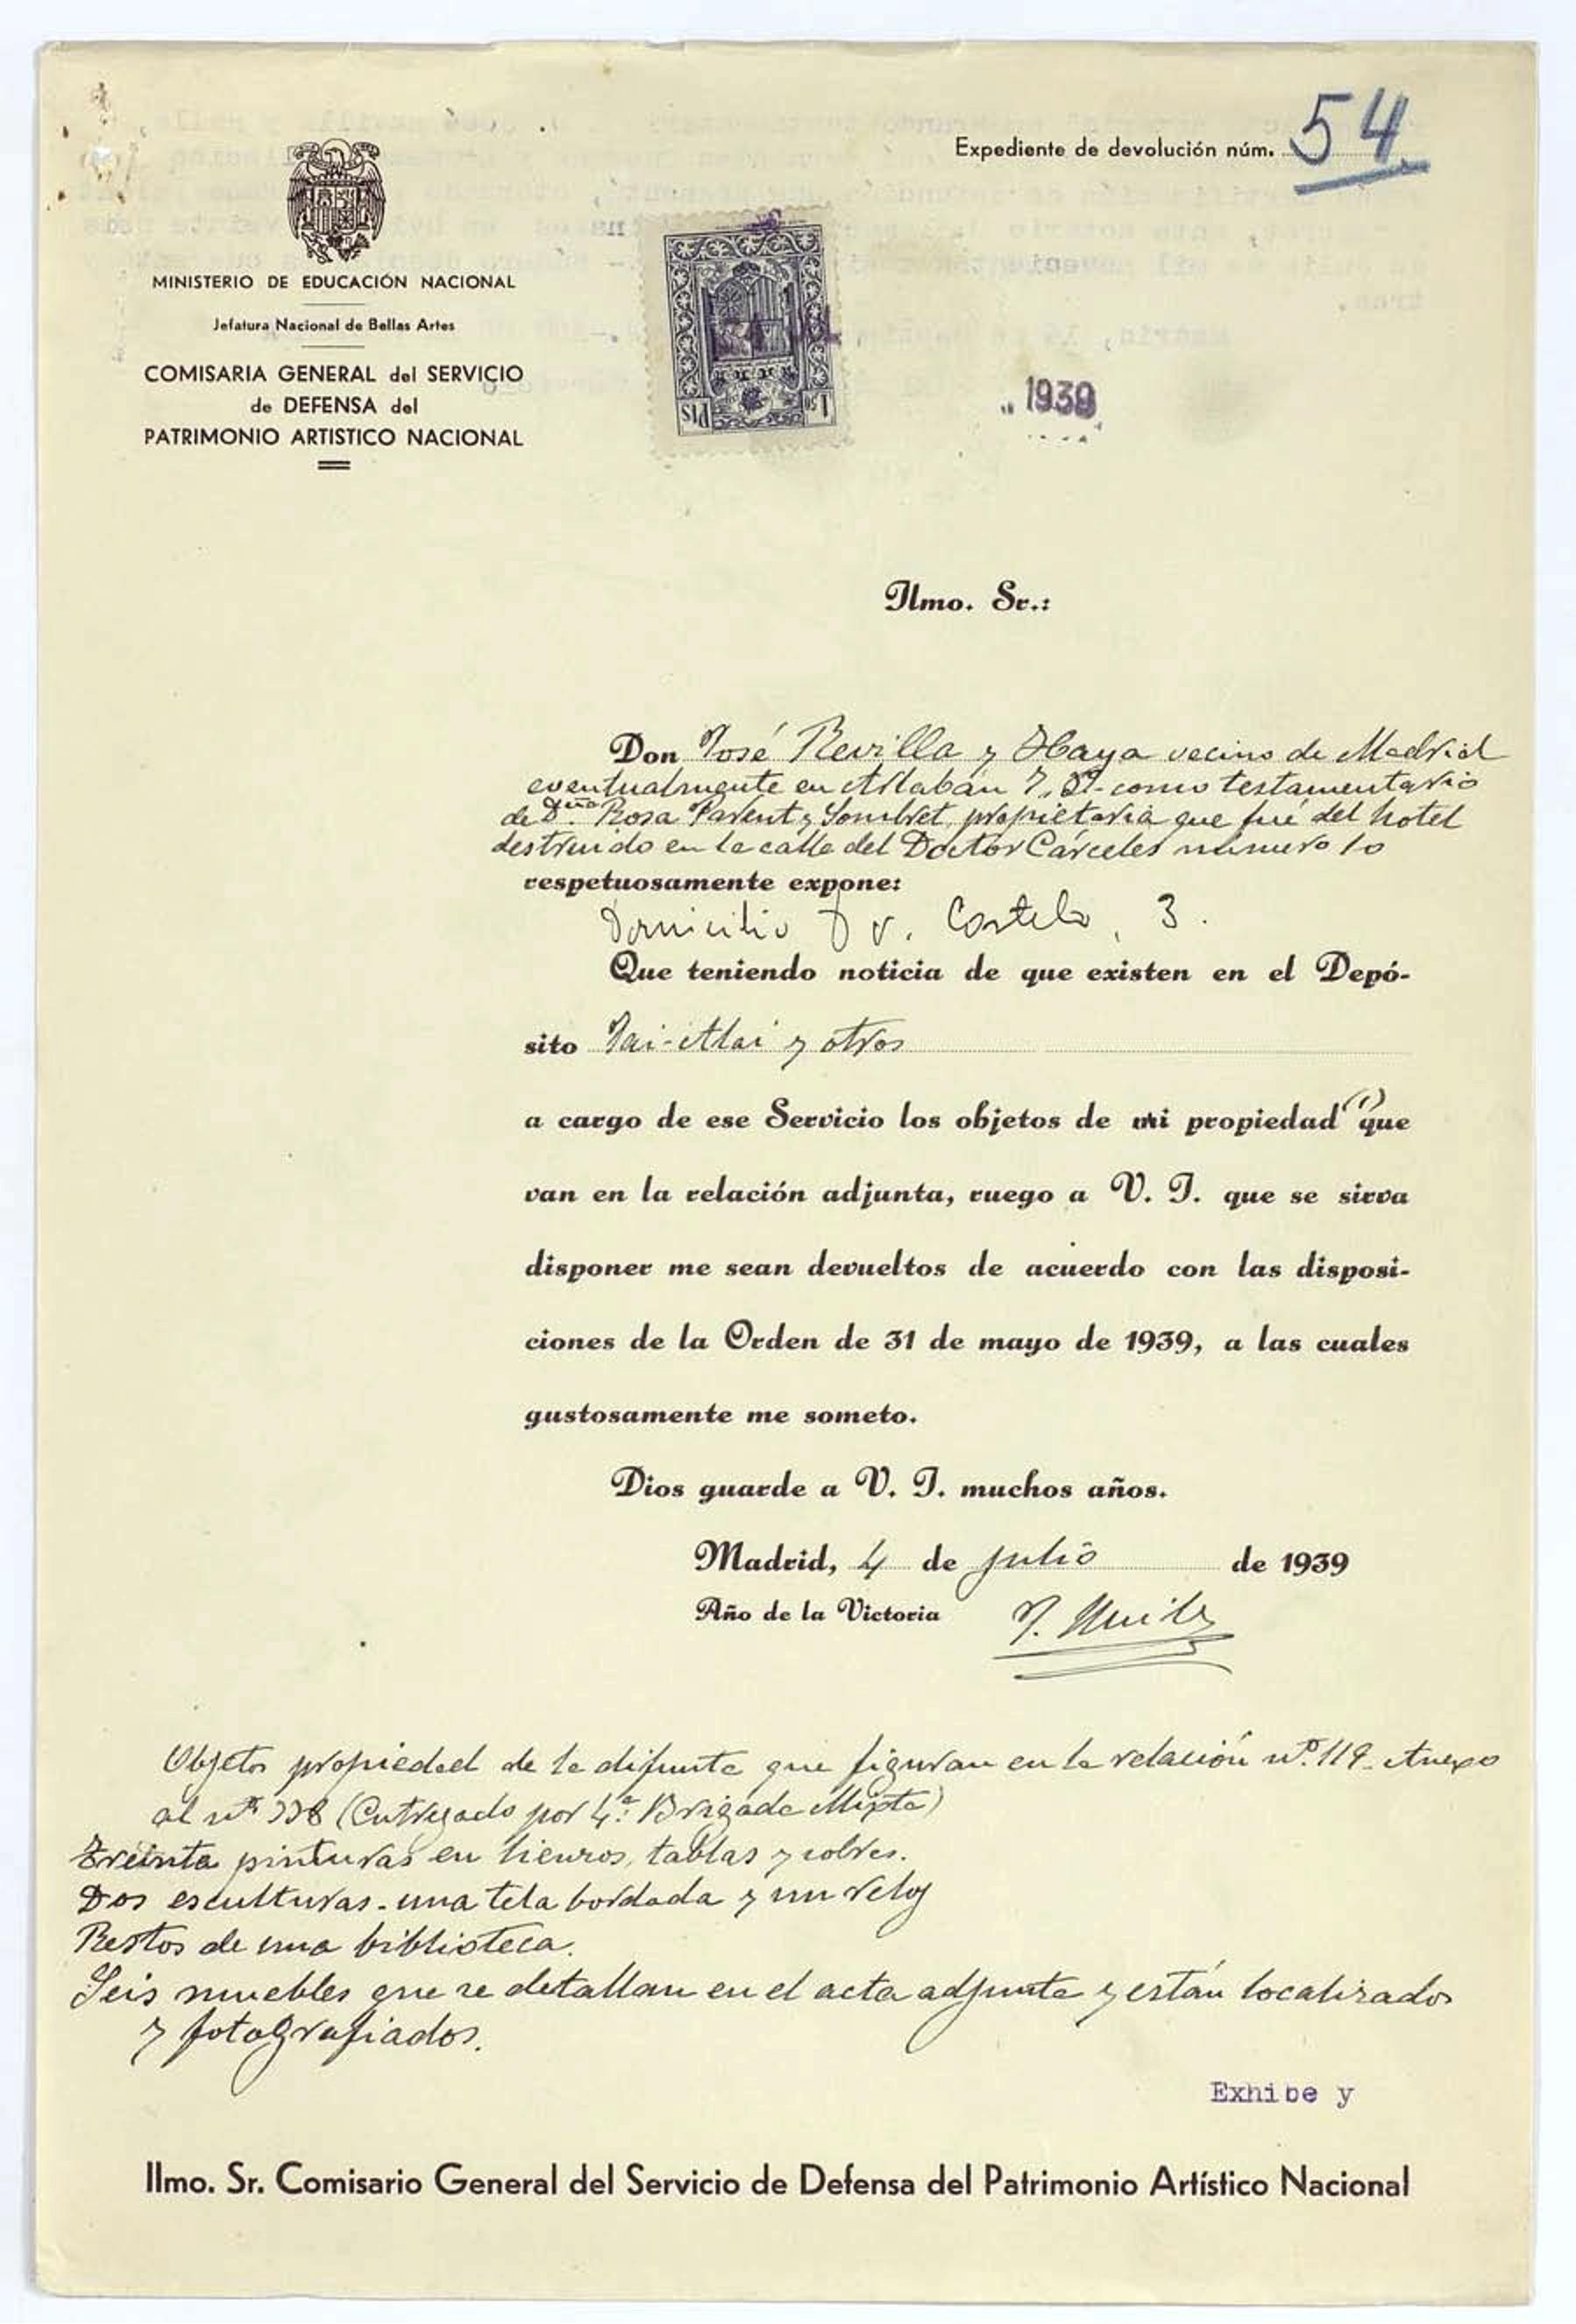 Expediente de devolución núm. 54
MINISTERIO DE EDUCACIÓN NACIONAL
Jefatura Nacional de Bellas Artes
COMISARIA GENERAL del SERVICIO
de DEFENSA del
PATRIMONIO ARTISTICO NACIONAL
PTS 1'50
1939
Ilmo. Sr.:
Don José Revilla y Haya vecino de Madrid
eventualmente en Arlabán 7, como testamentario
de Dña. Rosa Parent y propietaria que fué del hotel
destruido en la calle del Doctor Cárceles número 10
respetuosamente expone:
Domicilio Castelo, 3.
Que teniendo noticia de que existen en el Depó-
sito Jai-Alai y otros
a cargo de ese Servicio los objetos de mi propiedad (1) que
van en la relación adjunta, ruego a V. I. que se sirva
disponer me sean devueltos de acuerdo con las disposi-
ciones de la Orden de 31 de mayo de 1939, a las cuales
gustosamente me someto.
Dios guarde a V. I. muchos años.
Madrid, 4 de julio de 1939
Año de la Victoria
Objetos propiedad de la difunta que figuran en la relación nº. 119 - Anexo
al nº (Entregado por 4ª. Brigada Mixta)
Treinta pinturas en lienzos, tablas y cobres.
Dos esculturas - una tela bordada y un reloj
Restos de una biblioteca.
Seis muebles que se detallan en el acta adjunta y están localizados
y fotografiados.
Exhibe y
Ilmo. Sr. Comisario General del Servicio de Defensa del Patrimonio Artístico Nacional